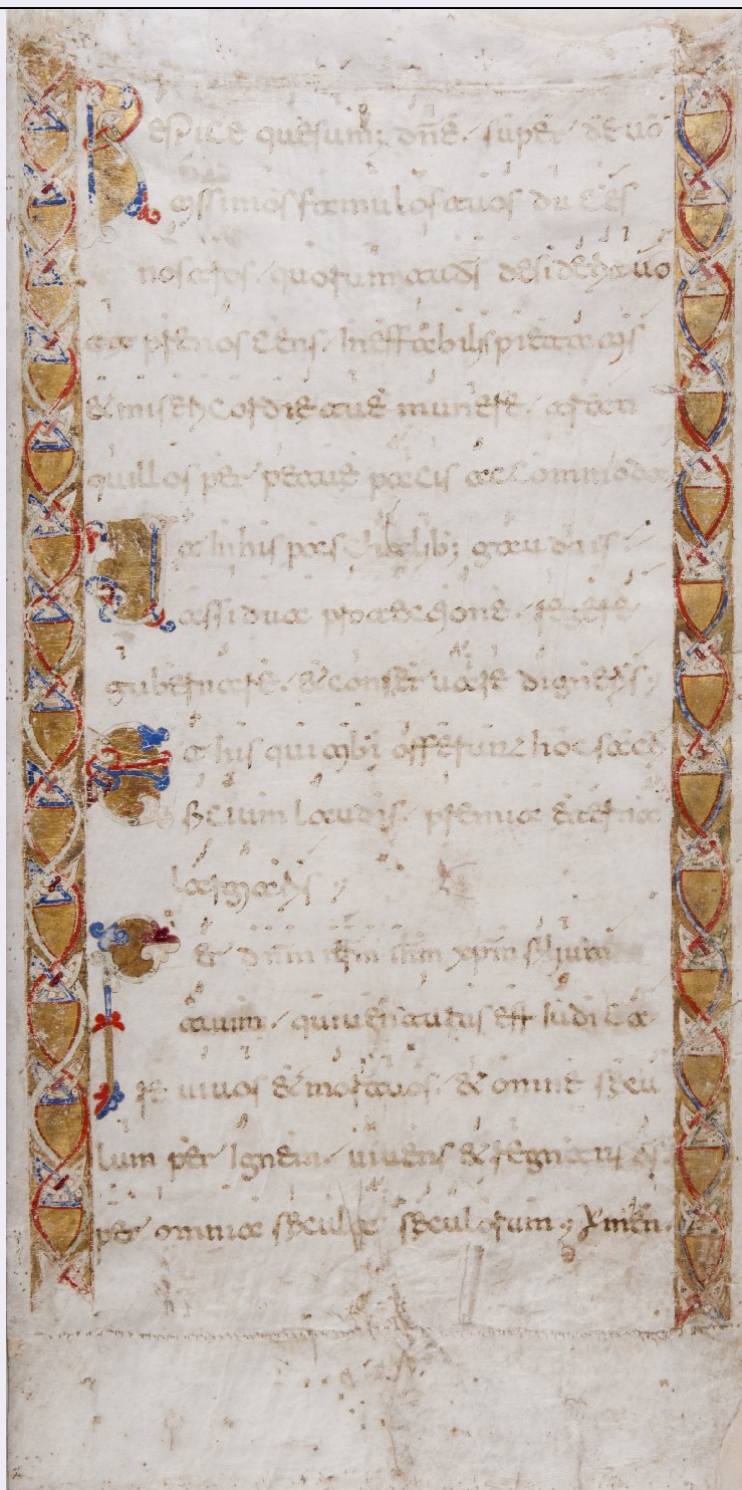 Respice quesum; dñe. super deuo
tissimos famulos tuos du ces
nostros. quorum tandi desideria uo
ta prenoscens. Ineffabilis pietatis
& misericordie tue munere. atten
qu illos per petue pacis accommoda
Da In his paschalib; gaudiis
assidua protectione. regere
gubernare. & conseruare digneris;
Da his qui tibi offerunt hoc sacri
ficium laudis. premia eterna
largiaris;
Per dñm nr̄m ihm xpm filium
tuum. qui uenturus est Iudica
re uiuos & mortuos. & omne secu
lum per Ignem. uiuens & regnans
per omnia secula seculorum; Amen.